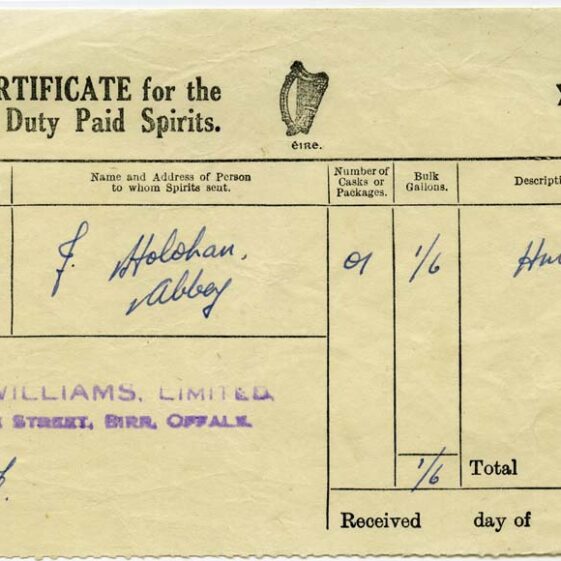 RTIFICATE for the
Duty Paid Spirits.
ÉIRE.
Name and Address of Person
to whom Spirits sent.
Number of
Casks or
Packages.
Bulk
Gallons.
Descripti
F. Holohan,
Abbey
01
1/6
WILLIAMS, LIMITED,
STREET, BIRR, OFFALY.
1/6
Total
Received day of